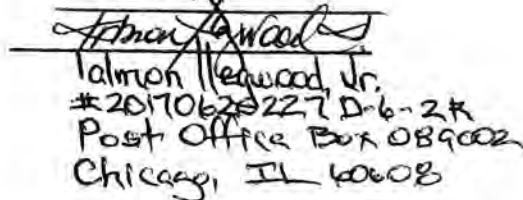 Talmon Hegwood, Jr.
Talmon Hegwood, Jr.
#20170620227 D-6-2R
Post Office Box 089002
Chicago, IL 60608